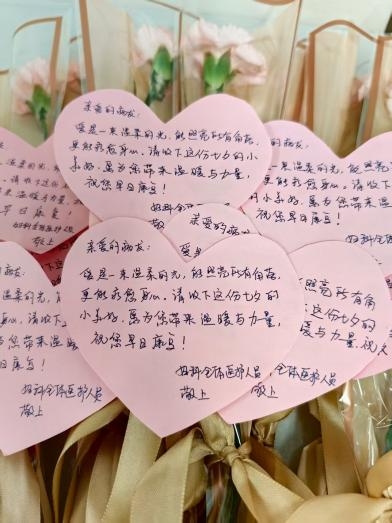 亲爱的病友:
爱是一束温柔的光,能照亮所有角落,
更能治愈身心。请收下这份七夕的小
美好,愿为您带来温暖与力量,
祝您早日康复!
的病友:
一束温柔的光,能照亮
身心。请收下这份七夕
好,愿为您带来温暖与力量
祝您早日康复!
妇科全体医护
敬上
温柔的光
请收下这
带来温暖与力量,
早日康复!
妇科全体医护人员
敬上
亲爱的病
爱是
亲爱的病友:
爱是一束温柔的光,能照亮所有角落,
更能治愈身心。请收下这份七夕的
小美好,愿为您带来温暖与力量,
祝您早日康复!
妇科全体医护人员
敬上
温柔的光
心。请收下
您带来温暖
早日康复!
妇科全体医护人员
敬上
照亮所有角
这份七夕的
暖与力量,祝
全体医护人员
敬上